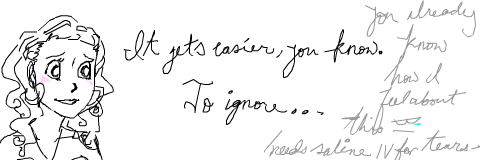 It gets easier, you know.
To ignore...
you already
know
how I
feel about
this
needs saline IV for tears~